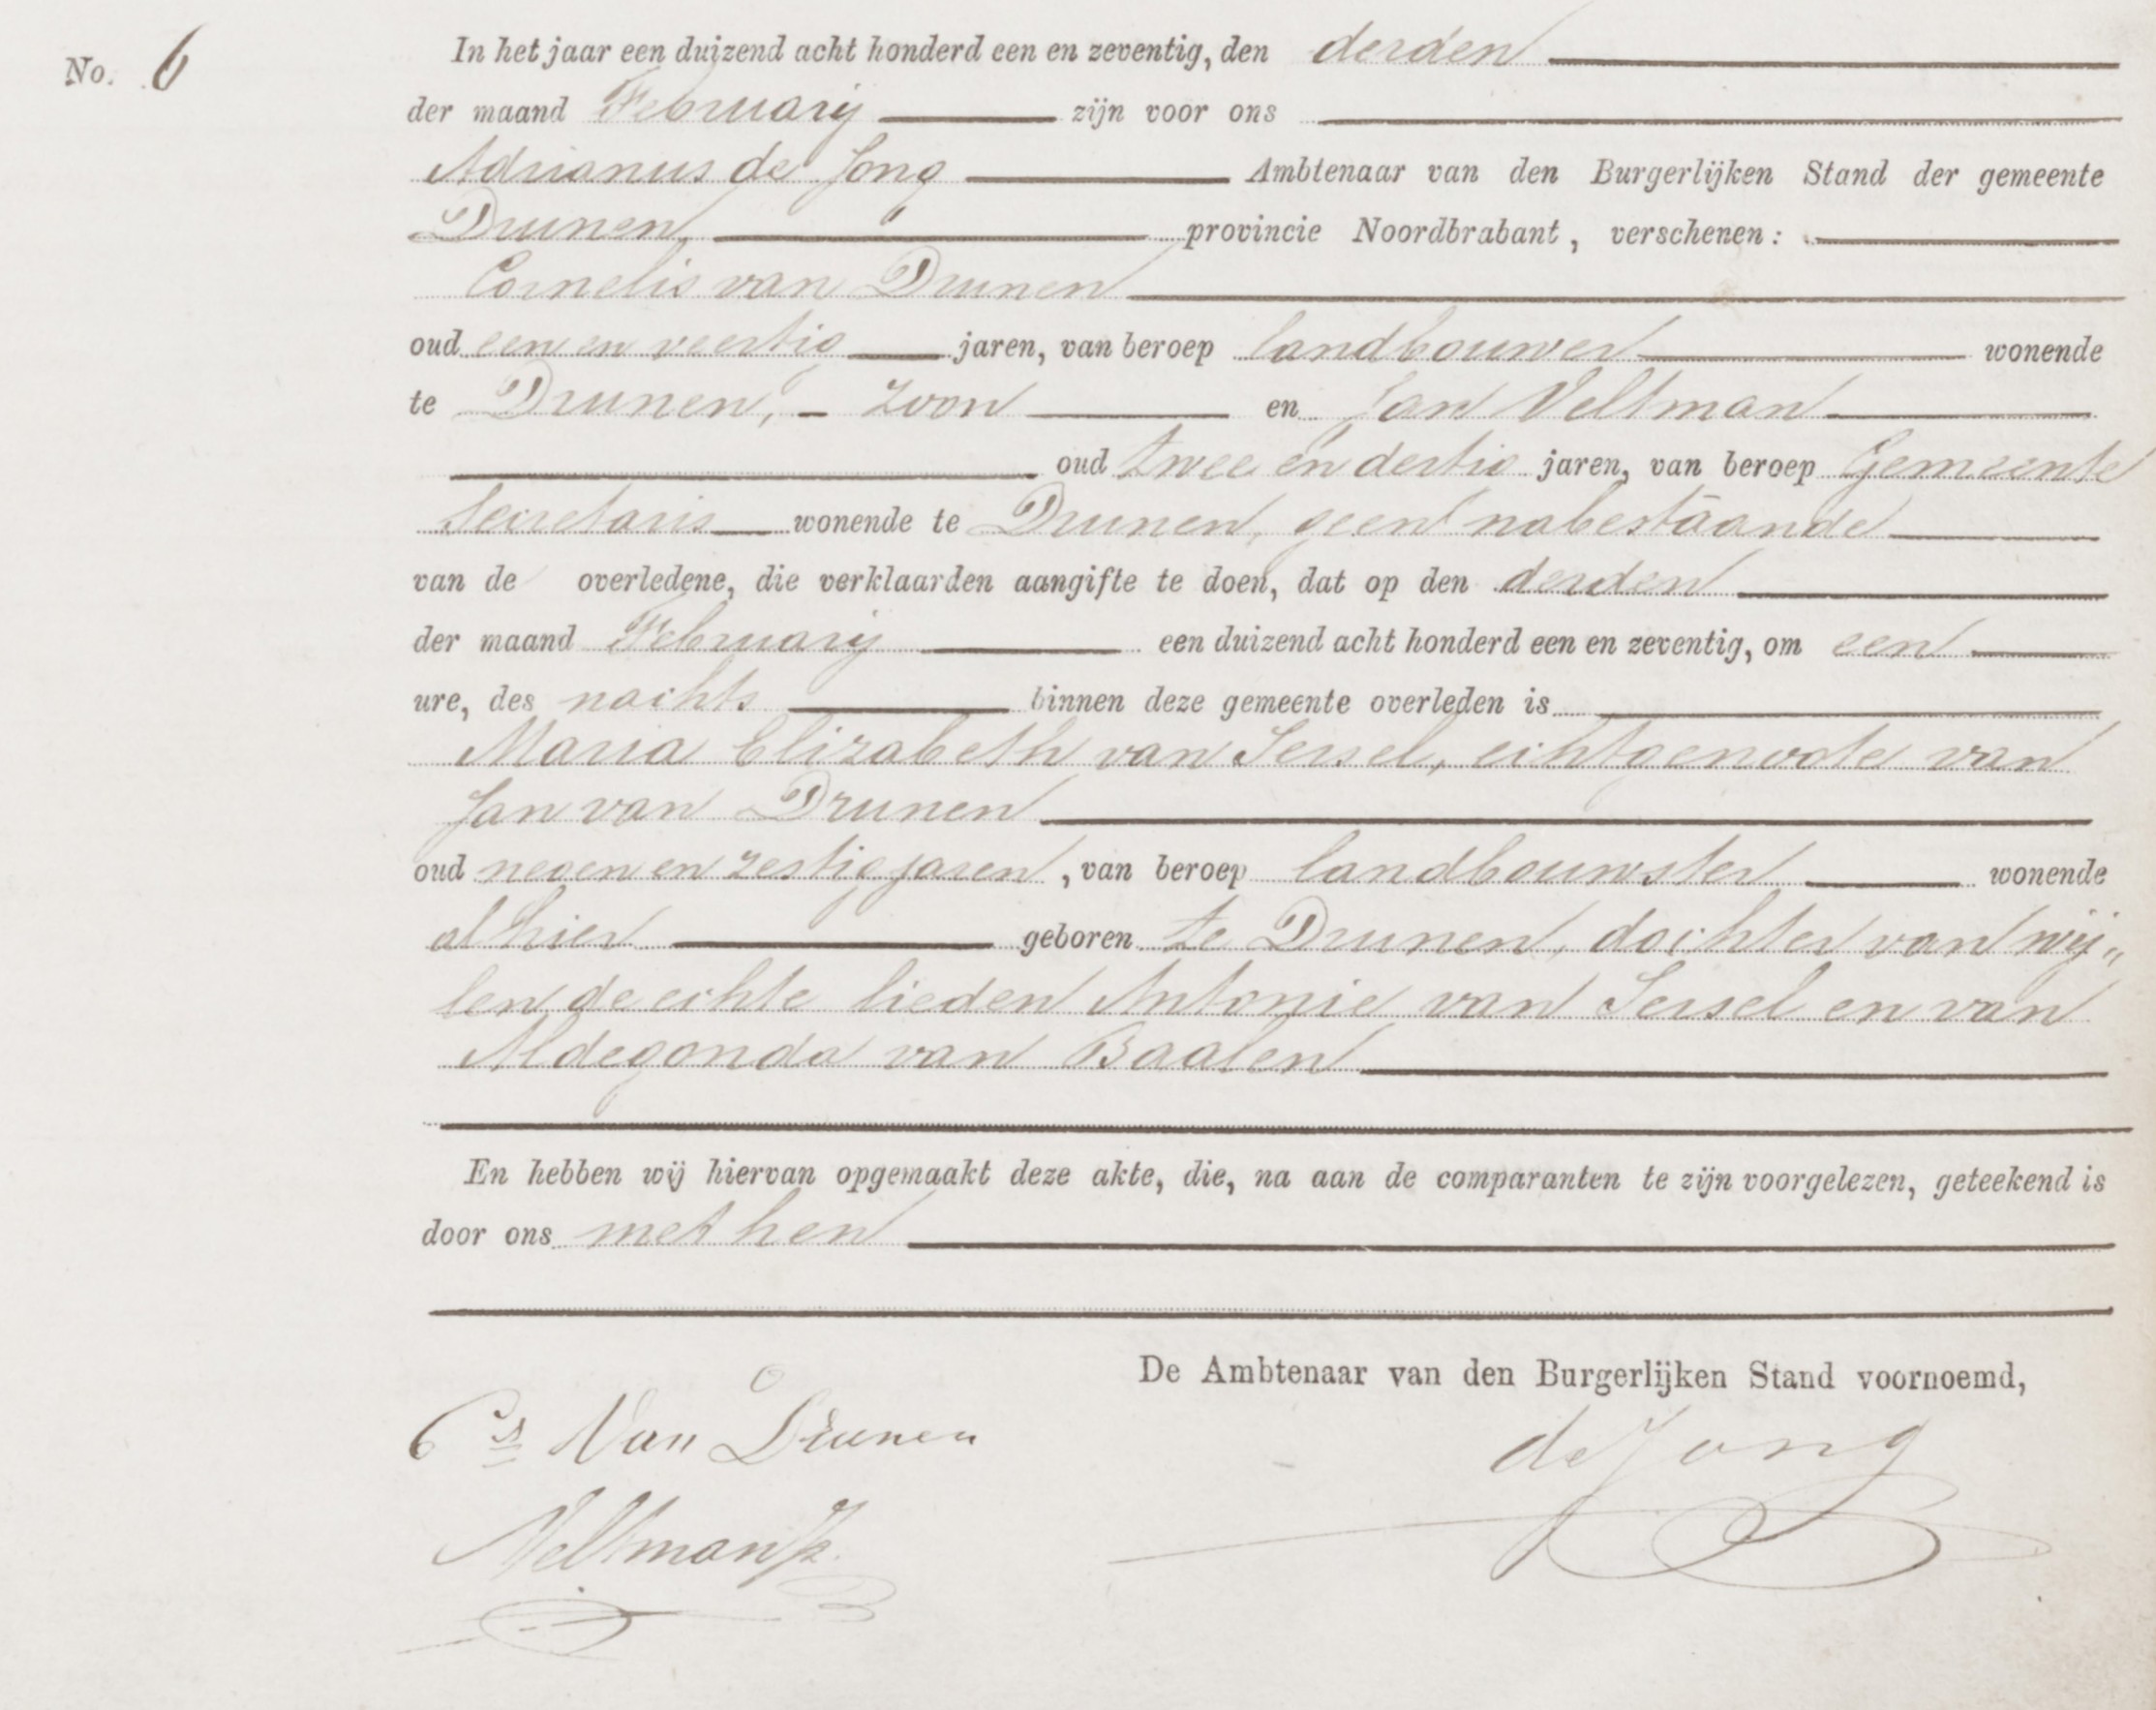 No. 6
In het jaar een duizend acht honderd een en zeventig, den derden
der maand Februarij zijn voor ons
Adrianus de Jong Ambtenaar van den Burgerlijken Stand der gemeente
Drunen, provincie Noordbrabant, verschenen:
Cornelis van Drunen
oud een en veertig jaren, van beroep landbouwer wonende
te Drunen, - zoon en Jan Veltman
oud twee en dertig jaren, van beroep Gemeente
Secretaris wonende te Drunen, geen nabestaande
van de overledene, die verklaarden aangifte te doen, dat op den derden
der maand Februarij een duizend acht honderd een en zeventig, om een
ure, des nachts binnen deze gemeente overleden is
Maria Elizabeth van Sersel, echtgenoote van
Jan van Drunen
oud negen en zestig jaren, van beroep landbouwster wonende
alhier geboren te Drunen, dochter van wij„
len de echte lieden Antonie van Sersel en van
Aldegonda van Baalen
En hebben wij hiervan opgemaakt deze akte, die, na aan de comparanten te zijn voorgelezen, geteekend is
door ons met hen
De Ambtenaar van den Burgerlijken Stand voornoemd,
Cs Van Drunen
de Jong
Veltman